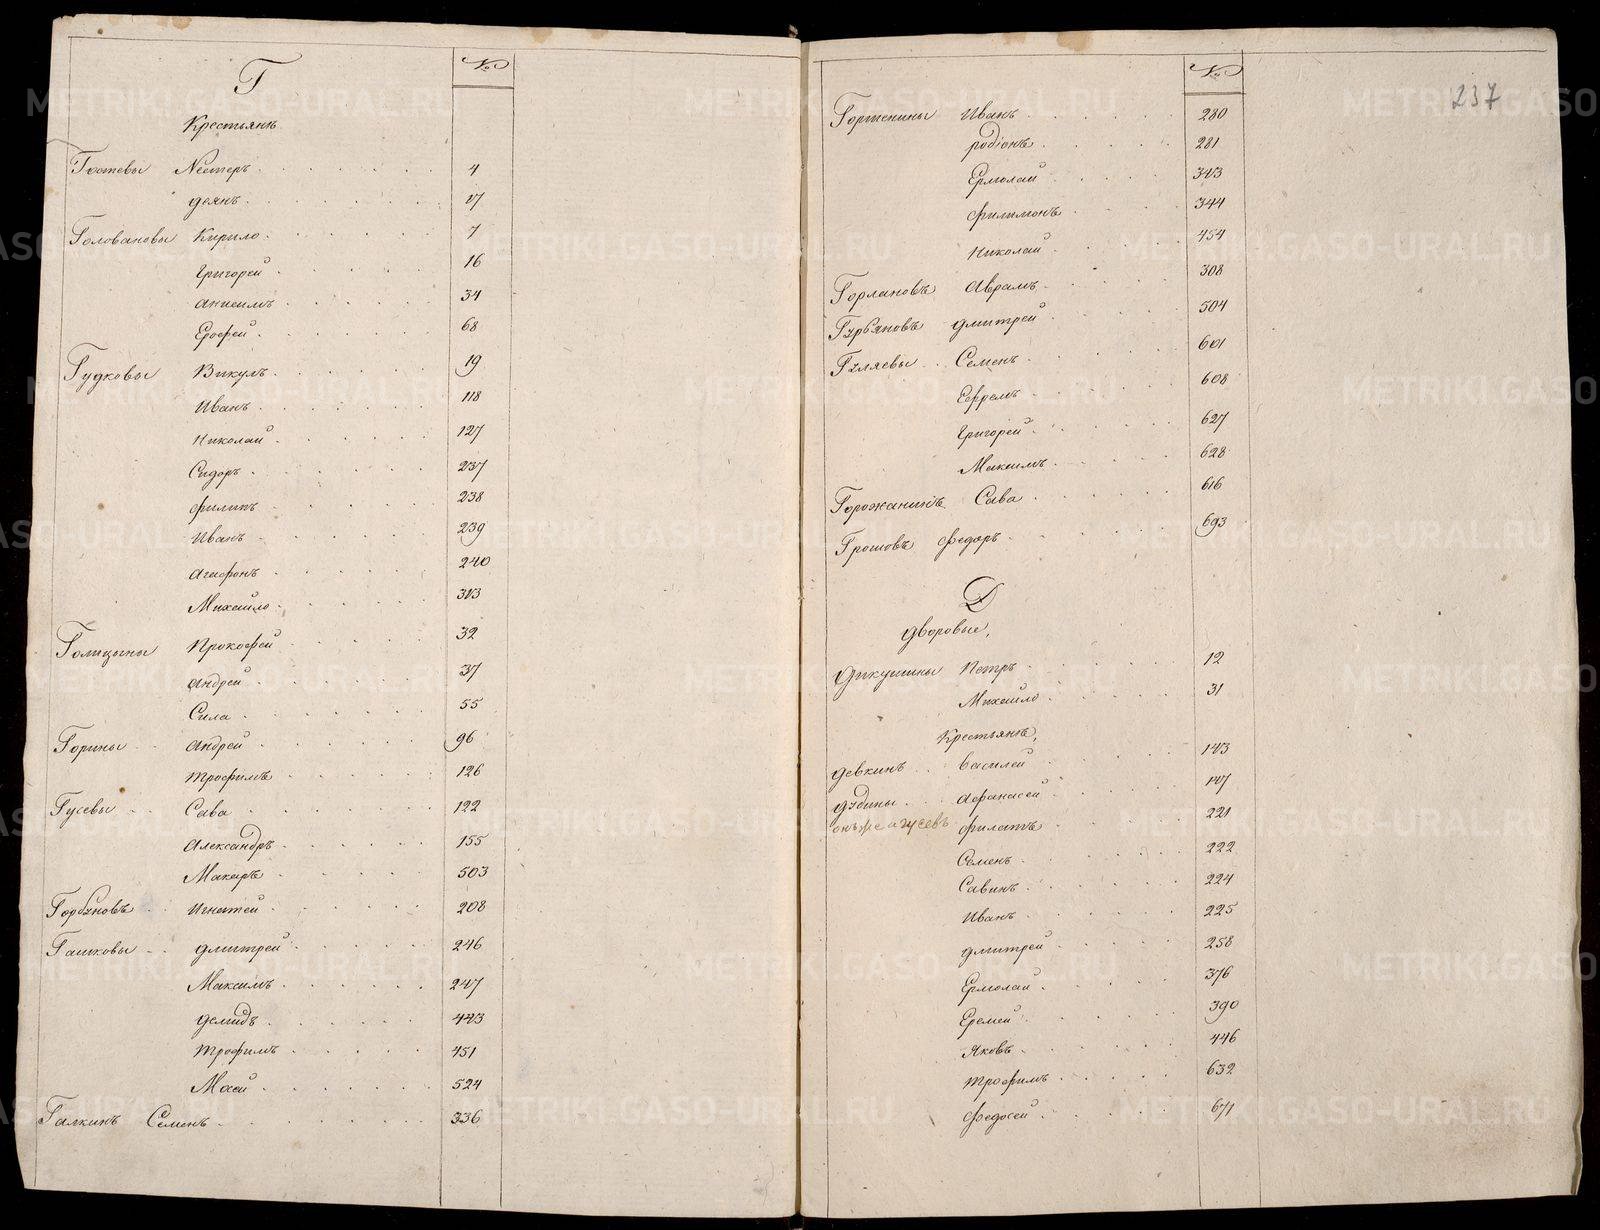 Г
№
Крестьянъ
Гостевы Нестеръ 4
Деянъ 17
Головановы Кирило 7
Григорей 16
Анисимъ 34
Ерофей 68
Гудковы Викулъ 19
Иванъ 118
Николай 127
Сидоръ 237
Филипъ 238
Иванъ 239
Агафонъ 240
Михайло 313
Голицыны Прокофей 32
Андрей 37
Сила 55
Горины Андрей 96
Трофимъ 126
Гусевы Сава 122
Александръ 155
Макаръ 503
Горбуновъ Игнатей 208
Гашковы Дмитрей 246
Максимъ 247
Демидъ 443
Трофимъ 451
Мосей 524
Галкинъ Семенъ 336
№
237
Иванъ 280
Родіонъ 281
Ермолай 343
Филимонъ 344
Николай 454
Горлановъ Аврамъ 308
Дмитрей 504
Гуляевы Семенъ 601
Ефремъ 608
Григорей 627
Максимъ 628
Горожанинъ Сава 616
Грошовъ Федоръ 693
Д
Дворовые,
Дикушины Петръ 12
Михайло 31
Крестьянъ,
Девкинъ Василей 143
Дудины Афанасей 147
онъ же и гусевъ Филатъ 221
Семенъ 222
Савинъ 224
Иванъ 225
Дмитрей 258
Ермолай 376
Еремей 390
Яковъ 446
Трофимъ 632
Федосей 671
METRIKI.GASO-URAL.RU